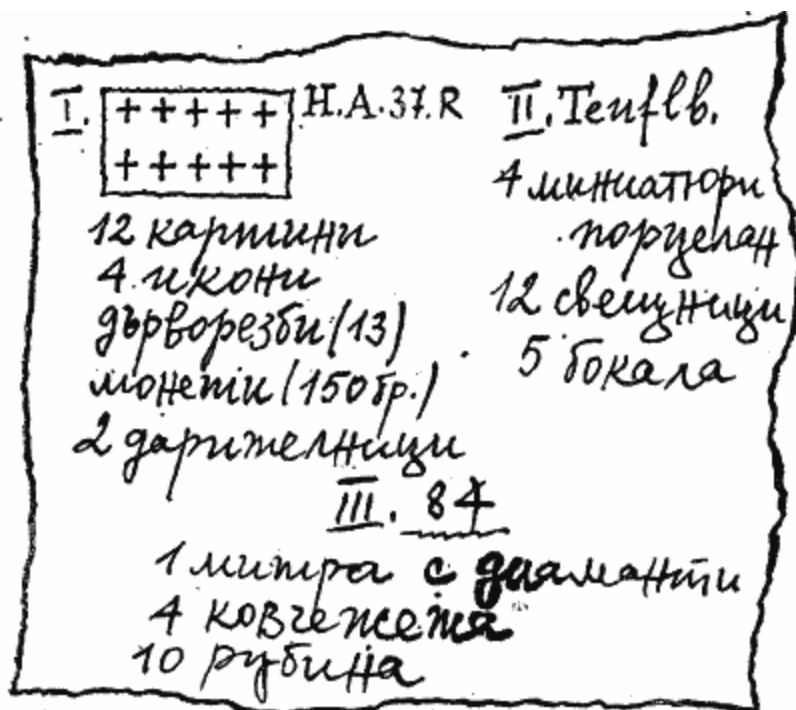 I. + + + + + H.A.37.R
+ + + + +
12 картини
4 икони
дърворезби (13)
монети (150 бр.)
2 дарителници
II. Teuflb.
4 миниатюри
порцелан
12 свещници
5 бокала
III. 84
1 митра с диаманти
4 ковчежета
10 рубина